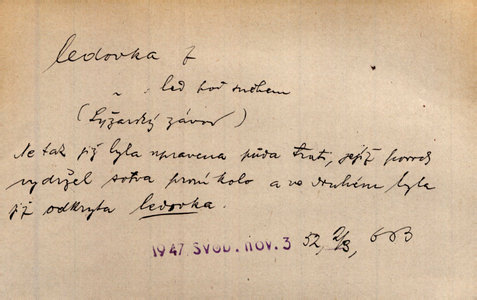 ledovka f
„ : led pod sněhem
(Lyžařský závod)
Ne tak již byla upravena půda trati, jejíž povrch
vydržel sotva první kolo a ve druhém byla
již odkryta ledovka.
1947 SVOB. NOV. 3 52, 2/3, 6 B